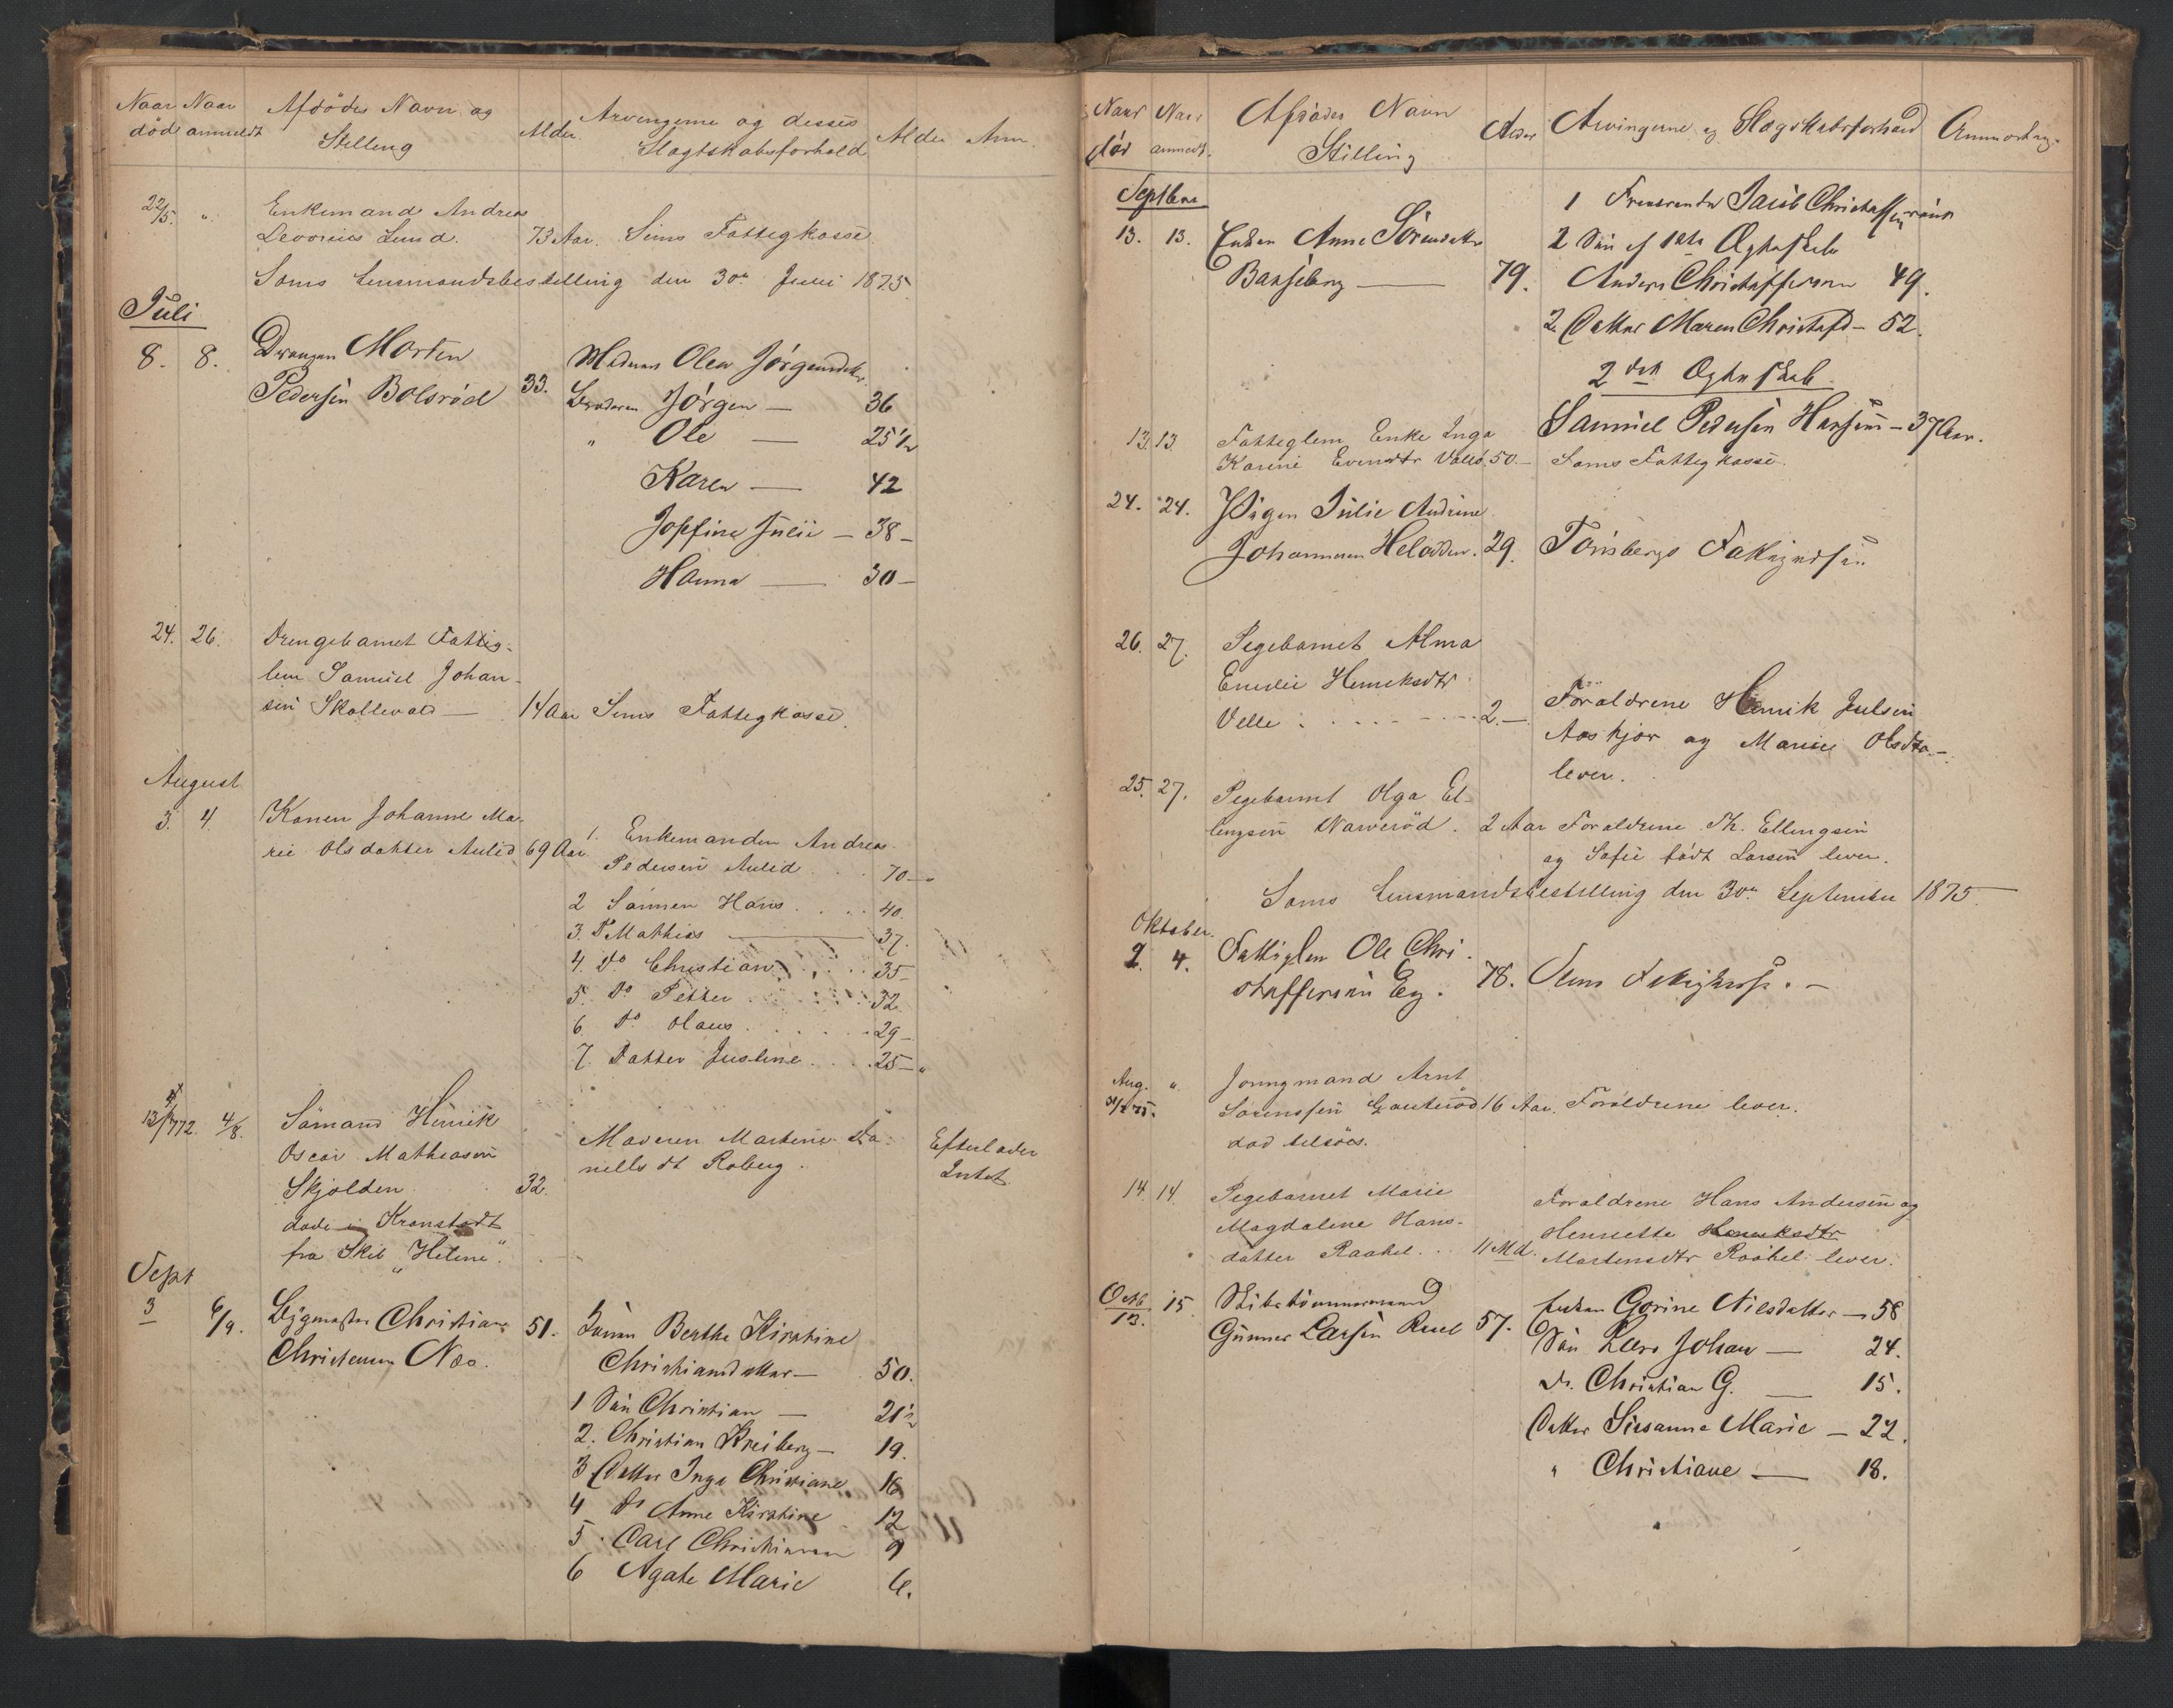 Naar Naar Afdödes Navn og Alder Arvingerne og disses Alder Anm.
död anmeldt Stilling Slagtskabsforhold
22/5. " Enkemand Andreas
Levorius Lund. 73 Aar. Sems Fattigkasse
Sems Lensmandsbestilling den 30te Juni 1875
Juli
8. 8. Drengen Morten Moderen Olea Jörgensdtr.
Pedersen Bolsröd 33. Broderen Jörgen — 36
" Ole — 25 1/2
Karen — 42
Josefine Julie — 38 —
Hanna — 30 —
24. 26. Drengebarnet Fattig-
lem Samuel Johan-
sen Skallevold — 14 Aar Sems Fattigkasse.
August
3. 4. Konen Johanne Ma- 1. Enkemanden Andreas
rie Olsdatter Aulid 69 Aar. Pedersen Aulid . . 70 —
2 Sönnen Hans . . . 40.
3. D Mathias — 37.
4. Do Christian . . . 35 —
5. Do Petter . . . 32
6. Do Olaus . . . 29 —
7. Datter Justine . . . 25 — "
13/7 72. 4/8. Sömand Henrik
Oscar Mathiasen Moderen Martine Da- Efterlader
Skjolden 32. nielsdt Roberg. Intet
döde i Kronstadt
fra Skib "Helene".
Sept
3 6/9. Bygmester Christian 51. Konen Berthe Kirstine
Christensen Næs. Christiansdatter — 50.
1 Sön Christian — 21 1/2
2. Christian Kreiberg — 19.
3 Datter Inga Christiane 16
4 Do Anne Kirstine 12
5 . Carl Christiansen 9
6 Agate Marie 6.
Naar Naar Afdödes Navn Alder Arvingerne og Slægtskabsforhold Anmærkng.
död anmeldt. Stilling
Septbene
13. 13. Enken Anne Sörensdatter 1 Jacob Christoffersen
2 Sön af 1ste Ægteskab
79. Anders Christoffersen 49.
2 Datter Maren Christofd — 52.
2det Ægteskab.
Samuel Pedersen Hansen — 37 Aar.
13. 13. Fattiglem Enke Inga
Karine Evensdtr Vallö 50. — Sems Fattigkasse.
24. 24. Pigen Julie Andrine
Johannesen Heladden. 29. Tönsbergs
26. 27. Pigebarnet Alma
Emilie Henriksdtr
Velle . . . . . . 2. — Foraldrene Henrik Julsen
Aaskjær og Marie Olsdtr —
lever.
25. 27. Pigebarnet Olga El-
lingsen Narveröd. 2 Aar Foraldrene Th. Ellingsen
og Sofie född Larsen lever.
Sems Lensmandsbestilling den 30te September 1875.
Oktober.
2. 4. Fattiglem Ole Chri-
stoffersen Eg. 78. Sems Fattigkasse. —
Aug. " Jomngmand Arnt
31/8 75. Sörenssen Gauteröd 16 Aar. Foräldrene lever.
död tilsöes.
14. 14. Pigebarnet Marie Foraldrene Hans Andersen og
Magdalene Hans- Henriette Henriksdtr
datter Raahel . . 11 Md. Martensdtr Raahel lever.
Octb 15 Skibstömmermand Enken Gorine Nilsdatter — 58
13. Gunner Larsen Ruel 57. Sön Lars Johan — 24.
Do. Christian G. — 15.
Datter Susanne Marie — 22.
" Christiane — 18.